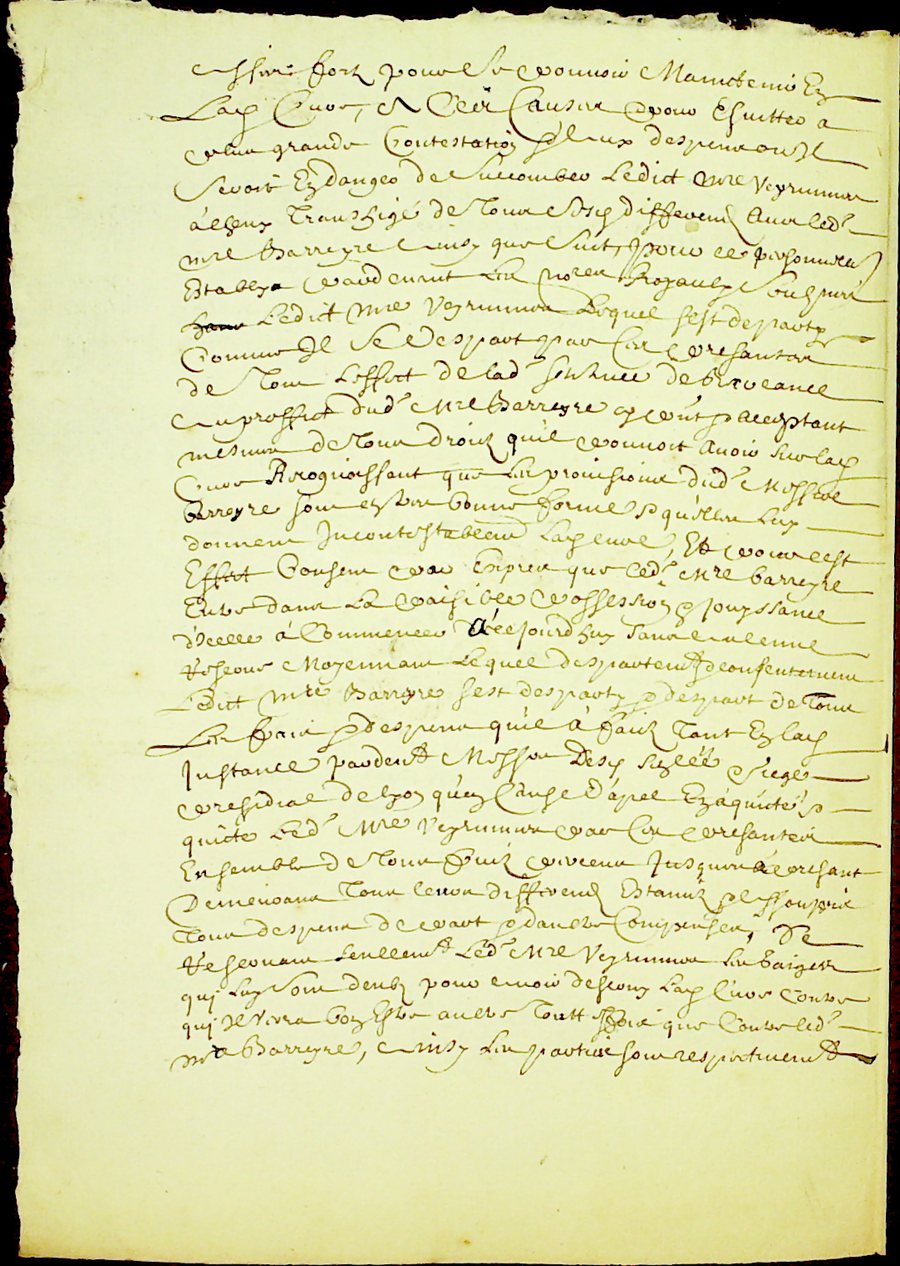 assere fort pour se pouvoir Maintenir En
Lad Cure, & Ces Causes pour Esvitter a
plus grande Contestation & aux despens ou Il
Seroit En danger de Succomber Ledict Mre Veyrunnes
à Transhigé de Tous Sesd differend Avec led.
mre Barreyre Ainsy que Suit, pour ce personnellement
Establys pardevant Les nores Royaulx Soubznés
Ledict Mre Veyrunnes Lequel s'est departy
Comme Il Se Despart par Ces presantes
de Tout L'effect de lad. Sentence de Recreance
Au proffict dud. Mre Barreyre present & acceptant
mesmes de Tous droits qu'il pouvoit avoir sur lad
Cure Recognoissant que Les provisions dud. Messire
Barreyre sont en bonne forme & qu'elles luy
donnent Incontestablement Lad cure, Et pour cest
Effect Consent par Exprez que led. Mre barreyre
Entre dans La paisible possession & Jouyssance
d'Icelle à Commencer dèz ce jourd'huy sans aulcune
Reserve Moyennant Lequel despartement & consentement
Ledict Mre Barreyre s'est desparty & despart de Tous
Les frais & despens qu'il à faict Tant En lad
Instance pardevt Messrs Desd Siege
presidial de Lyon qu'en Cause d'apel En àquitté &
quicte Led. Mre Veyrunnes par Ces presantes
Ensemble de Tous fruits perceus Jusques à present
Demeurant Tous leurs differends Estaints & assoupis
Tous despens de part & d'autre Compensés, Se
Reservant seullemt Led. Mre Veyrunnes Les gaiges
qui Luy sont deubz pour avoir desservy Lad Cure Contre
qui Il Verra bon Estre aultre Touttefois que Contre led.
mre Barreyre, Ainsy Les parties sont respectivemt